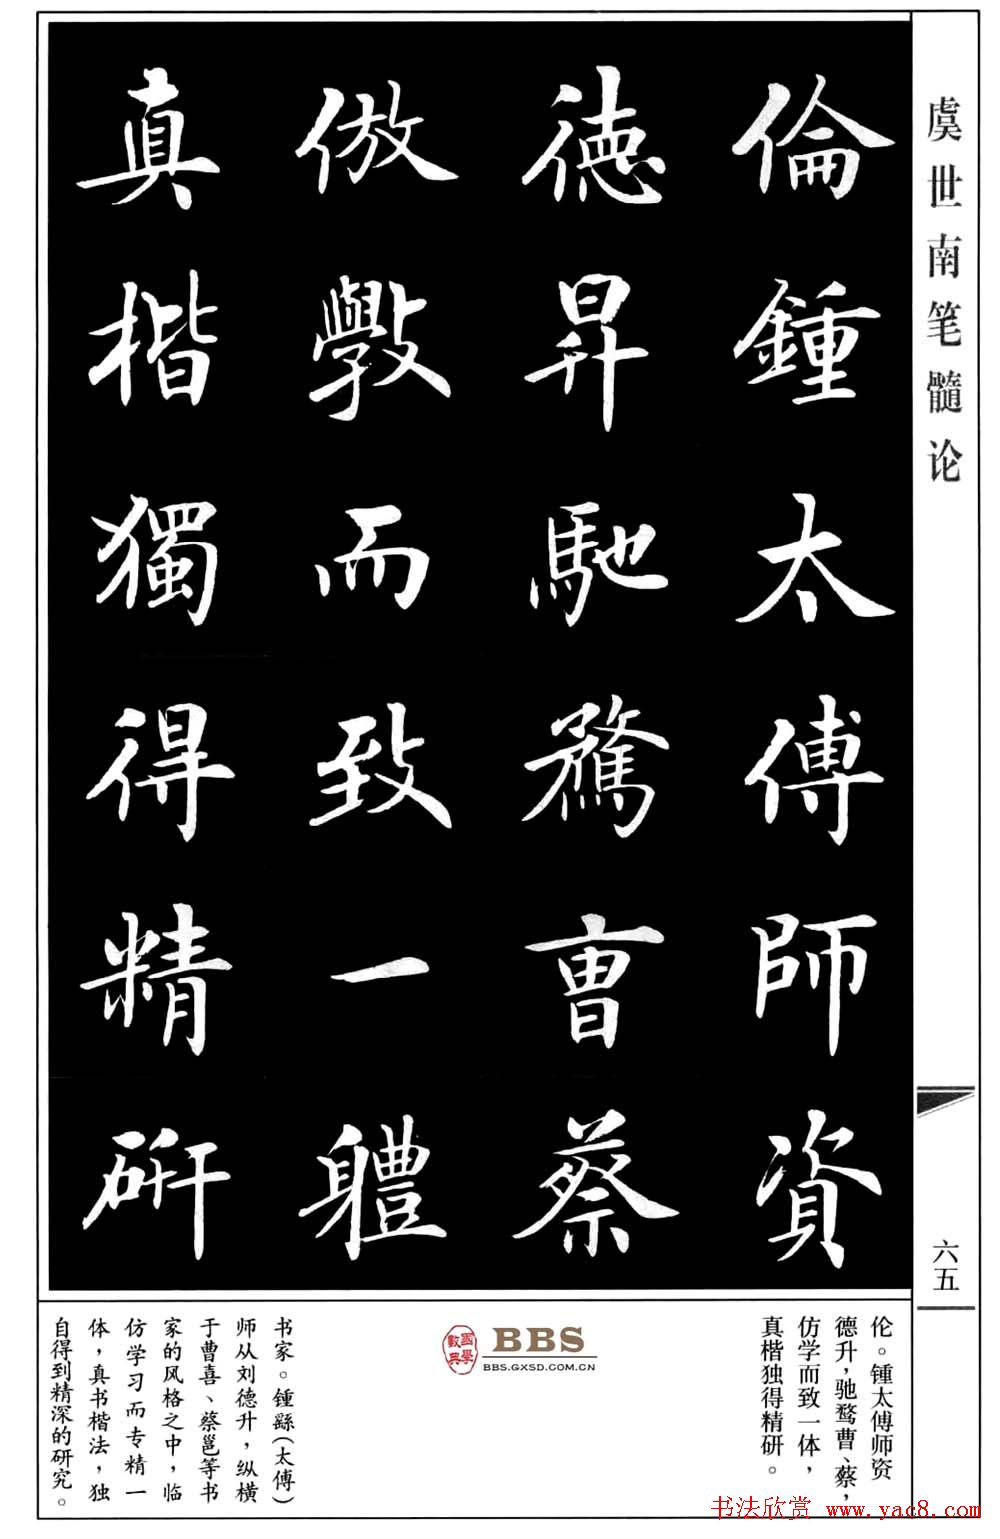 虞世南笔髓论
倫鍾太傅師資
德昇馳騖曹蔡
倣斆而致一軆
真楷獨得精研
六五
伦。锺太傅师资
德升，驰骛曹、蔡，
仿学而致一体，
真楷独得精研。
國學數典
BBS
BBS.GXSD.COM.CN
书家。锺繇（太傅）
师从刘德升，纵横
于曹喜、蔡邕等书
家的风格之中，临
仿学习而专精一
体，真书楷法，独
自得到精深的研究。
书法欣赏 www.yac8.com